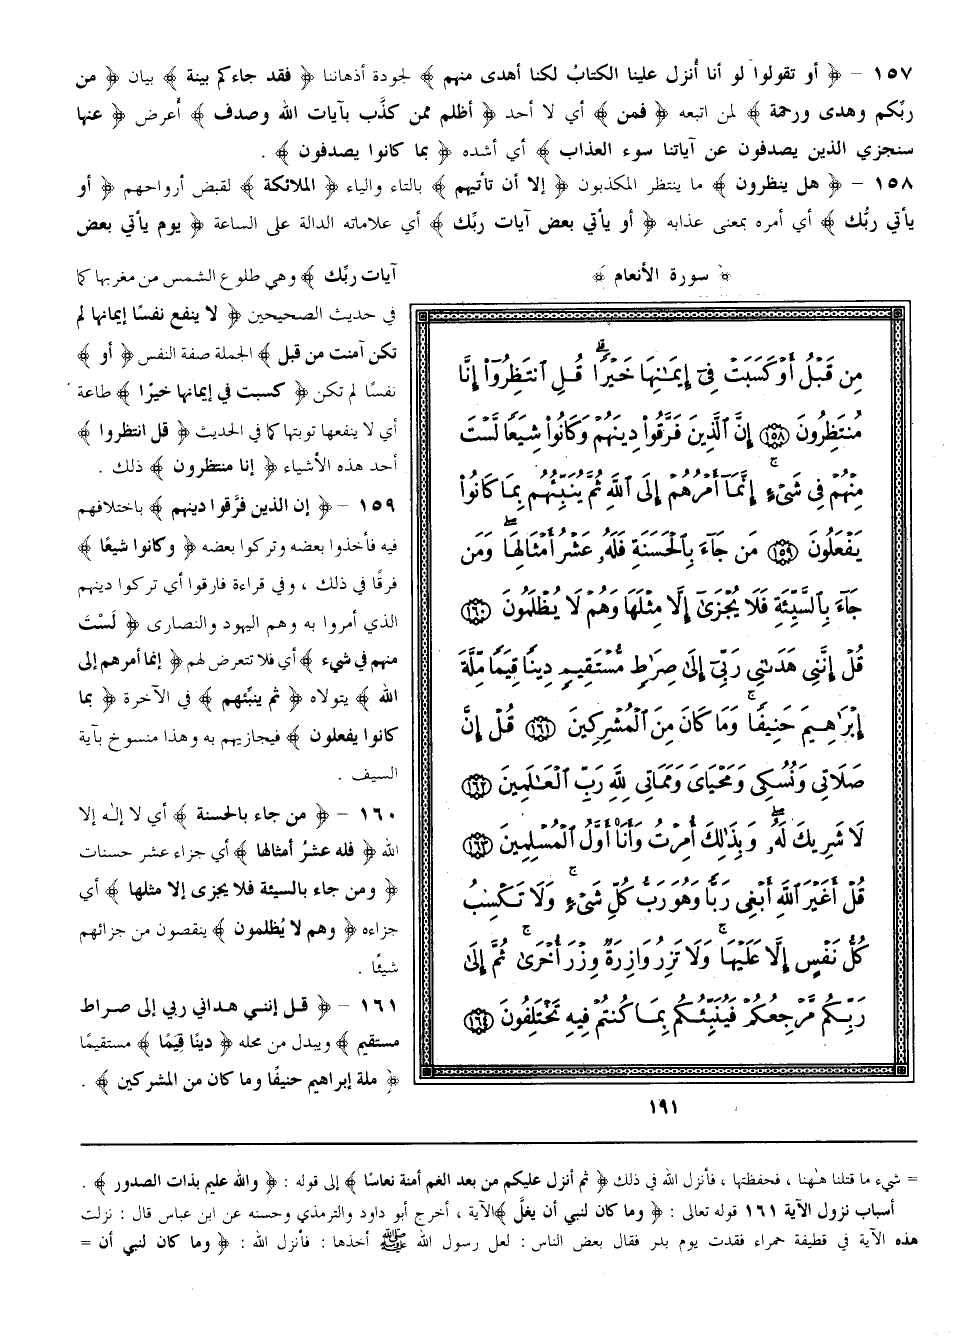 ١٥٧ - ﴿ أو تقولوا لو أنا أُنزل علينا الكتابُ لكنا أهدى منهم ﴾ لجودة أذهاننا ﴿ فقد جاءكم بينة ﴾ بيان ﴿ من
ربِّكم وهدى ورحمة ﴾ لمن اتبعه ﴿ فمن ﴾ أي لا أحد ﴿ أظلم ممن كذَّب بآيات الله وصدف ﴾ أعرض ﴿ عنها
سنجزي الذين يصدفون عن آياتنا سوء العذاب ﴾ أي أشده ﴿ بما كانوا يصدفون ﴾ .
١٥٨ - ﴿ هل ينظرون ﴾ ما ينتظر المكذبون ﴿ إلا أن تأتيهم ﴾ بالتاء والياء ﴿ الملائكة ﴾ لقبض أرواحهم ﴿ أو
يأتي ربُّك ﴾ أي أمره بمعنى عذابه ﴿ أو يأتي بعض آيات ربِّك ﴾ أي علاماته الدالة على الساعة ﴿ يوم يأتي بعض
﴿ سورة الأنعام ﴾
مِن قَبْلُ أَوْ كَسَبَتْ فِىٓ إِيمَٰنِهَا خَيْرًا ۗ قُلِ ٱنتَظِرُوٓا۟ إِنَّا
مُنتَظِرُونَ ١٥٨ إِنَّ ٱلَّذِينَ فَرَّقُوا۟ دِينَهُمْ وَكَانُوا۟ شِيَعًا لَّسْتَ
مِنْهُمْ فِى شَىْءٍ ۚ إِنَّمَآ أَمْرُهُمْ إِلَى ٱللَّهِ ثُمَّ يُنَبِّئُهُم بِمَا كَانُوا۟
يَفْعَلُونَ ١٥٩ مَن جَآءَ بِٱلْحَسَنَةِ فَلَهُۥ عَشْرُ أَمْثَالِهَا ۖ وَمَن
جَآءَ بِٱلسَّيِّئَةِ فَلَا يُجْزَىٰٓ إِلَّا مِثْلَهَا وَهُمْ لَا يُظْلَمُونَ ١٦٠
قُلْ إِنَّنِى هَدَىٰنِى رَبِّىٓ إِلَىٰ صِرَٰطٍ مُّسْتَقِيمٍ دِينًا قِيَمًا مِّلَّةَ
إِبْرَٰهِيمَ حَنِيفًا ۚ وَمَا كَانَ مِنَ ٱلْمُشْرِكِينَ ١٦١ قُلْ إِنَّ
صَلَاتِى وَنُسُكِى وَمَحْيَاىَ وَمَمَاتِى لِلَّهِ رَبِّ ٱلْعَٰلَمِينَ ١٦٢
لَا شَرِيكَ لَهُۥ ۖ وَبِذَٰلِكَ أُمِرْتُ وَأَنَا۠ أَوَّلُ ٱلْمُسْلِمِينَ ١٦٣
قُلْ أَغَيْرَ ٱللَّهِ أَبْغِى رَبًّا وَهُوَ رَبُّ كُلِّ شَىْءٍ ۚ وَلَا تَكْسِبُ
كُلُّ نَفْسٍ إِلَّا عَلَيْهَا ۚ وَلَا تَزِرُ وَازِرَةٌ وِزْرَ أُخْرَىٰ ۚ ثُمَّ إِلَىٰ
رَبِّكُم مَّرْجِعُكُمْ فَيُنَبِّئُكُم بِمَا كُنتُمْ فِيهِ تَخْتَلِفُونَ ١٦٤
١٩١
آيات ربِّك ﴾ وهي طلوع الشمس من مغربها كما
في حديث الصحيحين ﴿ لا ينفع نفسًا إيمانها لم
تكن آمنت من قبل ﴾ الجملة صفة النفس ﴿ أو ﴾
نفسًا لم تكن ﴿ كسبت في إيمانها خيرًا ﴾ طاعة
أي لا ينفعها توبتها كما في الحديث ﴿ قل انتظروا ﴾
أحد هذه الأشياء ﴿ إنا منتظرون ﴾ ذلك .
١٥٩ - ﴿ إن الذين فرَّقوا دينهم ﴾ باختلافهم
فيه فأخذوا بعضه وتركوا بعضه ﴿ وكانوا شيعًا ﴾
فرقًا في ذلك ، وفي قراءة فارقوا أي تركوا دينهم
الذي أمروا به وهم اليهود والنصارى ﴿ لَسْتَ
منهم في شيء ﴾ أي فلا تتعرض لهم ﴿ إنما أمرهم إلى
الله ﴾ يتولاه ﴿ ثم ينبِّئهم ﴾ في الآخرة ﴿ بما
كانوا يفعلون ﴾ فيجازيهم به وهذا منسوخ بآية
السيف .
١٦٠ - ﴿ من جاء بالحسنة ﴾ أي لا إلـٰه إلا
الله ﴿ فله عشرُ أمثالها ﴾ أي جزاء عشر حسنات
﴿ ومن جاء بالسيئة فلا يجزى إلا مثلها ﴾ أي
جزاءه ﴿ وهم لا يُظلمون ﴾ ينقصون من جزائهم
شيئًا .
١٦١ - ﴿ قـل إنني هداني ربي إلى صراط
مستقيم ﴾ ويبدل من محله ﴿ دينًا قيِّمًا ﴾ مستقيمًا
﴿ ملة إبراهيم حنيفًا وما كان من المشركين ﴾ .
= شيء ما قتلنا هـٰهنا ، فحفظتها ، فأنزل الله في ذلك ﴿ ثم أنزل عليكم من بعد الغم أمنة نعاسًا ﴾ إلى قوله : ﴿ والله عليم بذات الصدور ﴾ .
أسباب نزول الآية ١٦١ قوله تعالى : ﴿ وما كان لنبي أن يغلَّ ﴾ الآية ، أخرج أبو داود والترمذي وحسنه عن ابن عباس قال : نزلت
هذه الآية في قطيفة حمراء فقدت يوم بدر فقال بعض الناس : لعل رسول الله ﷺ أخذها : فأنزل الله : ﴿ وما كان لنبي أن =